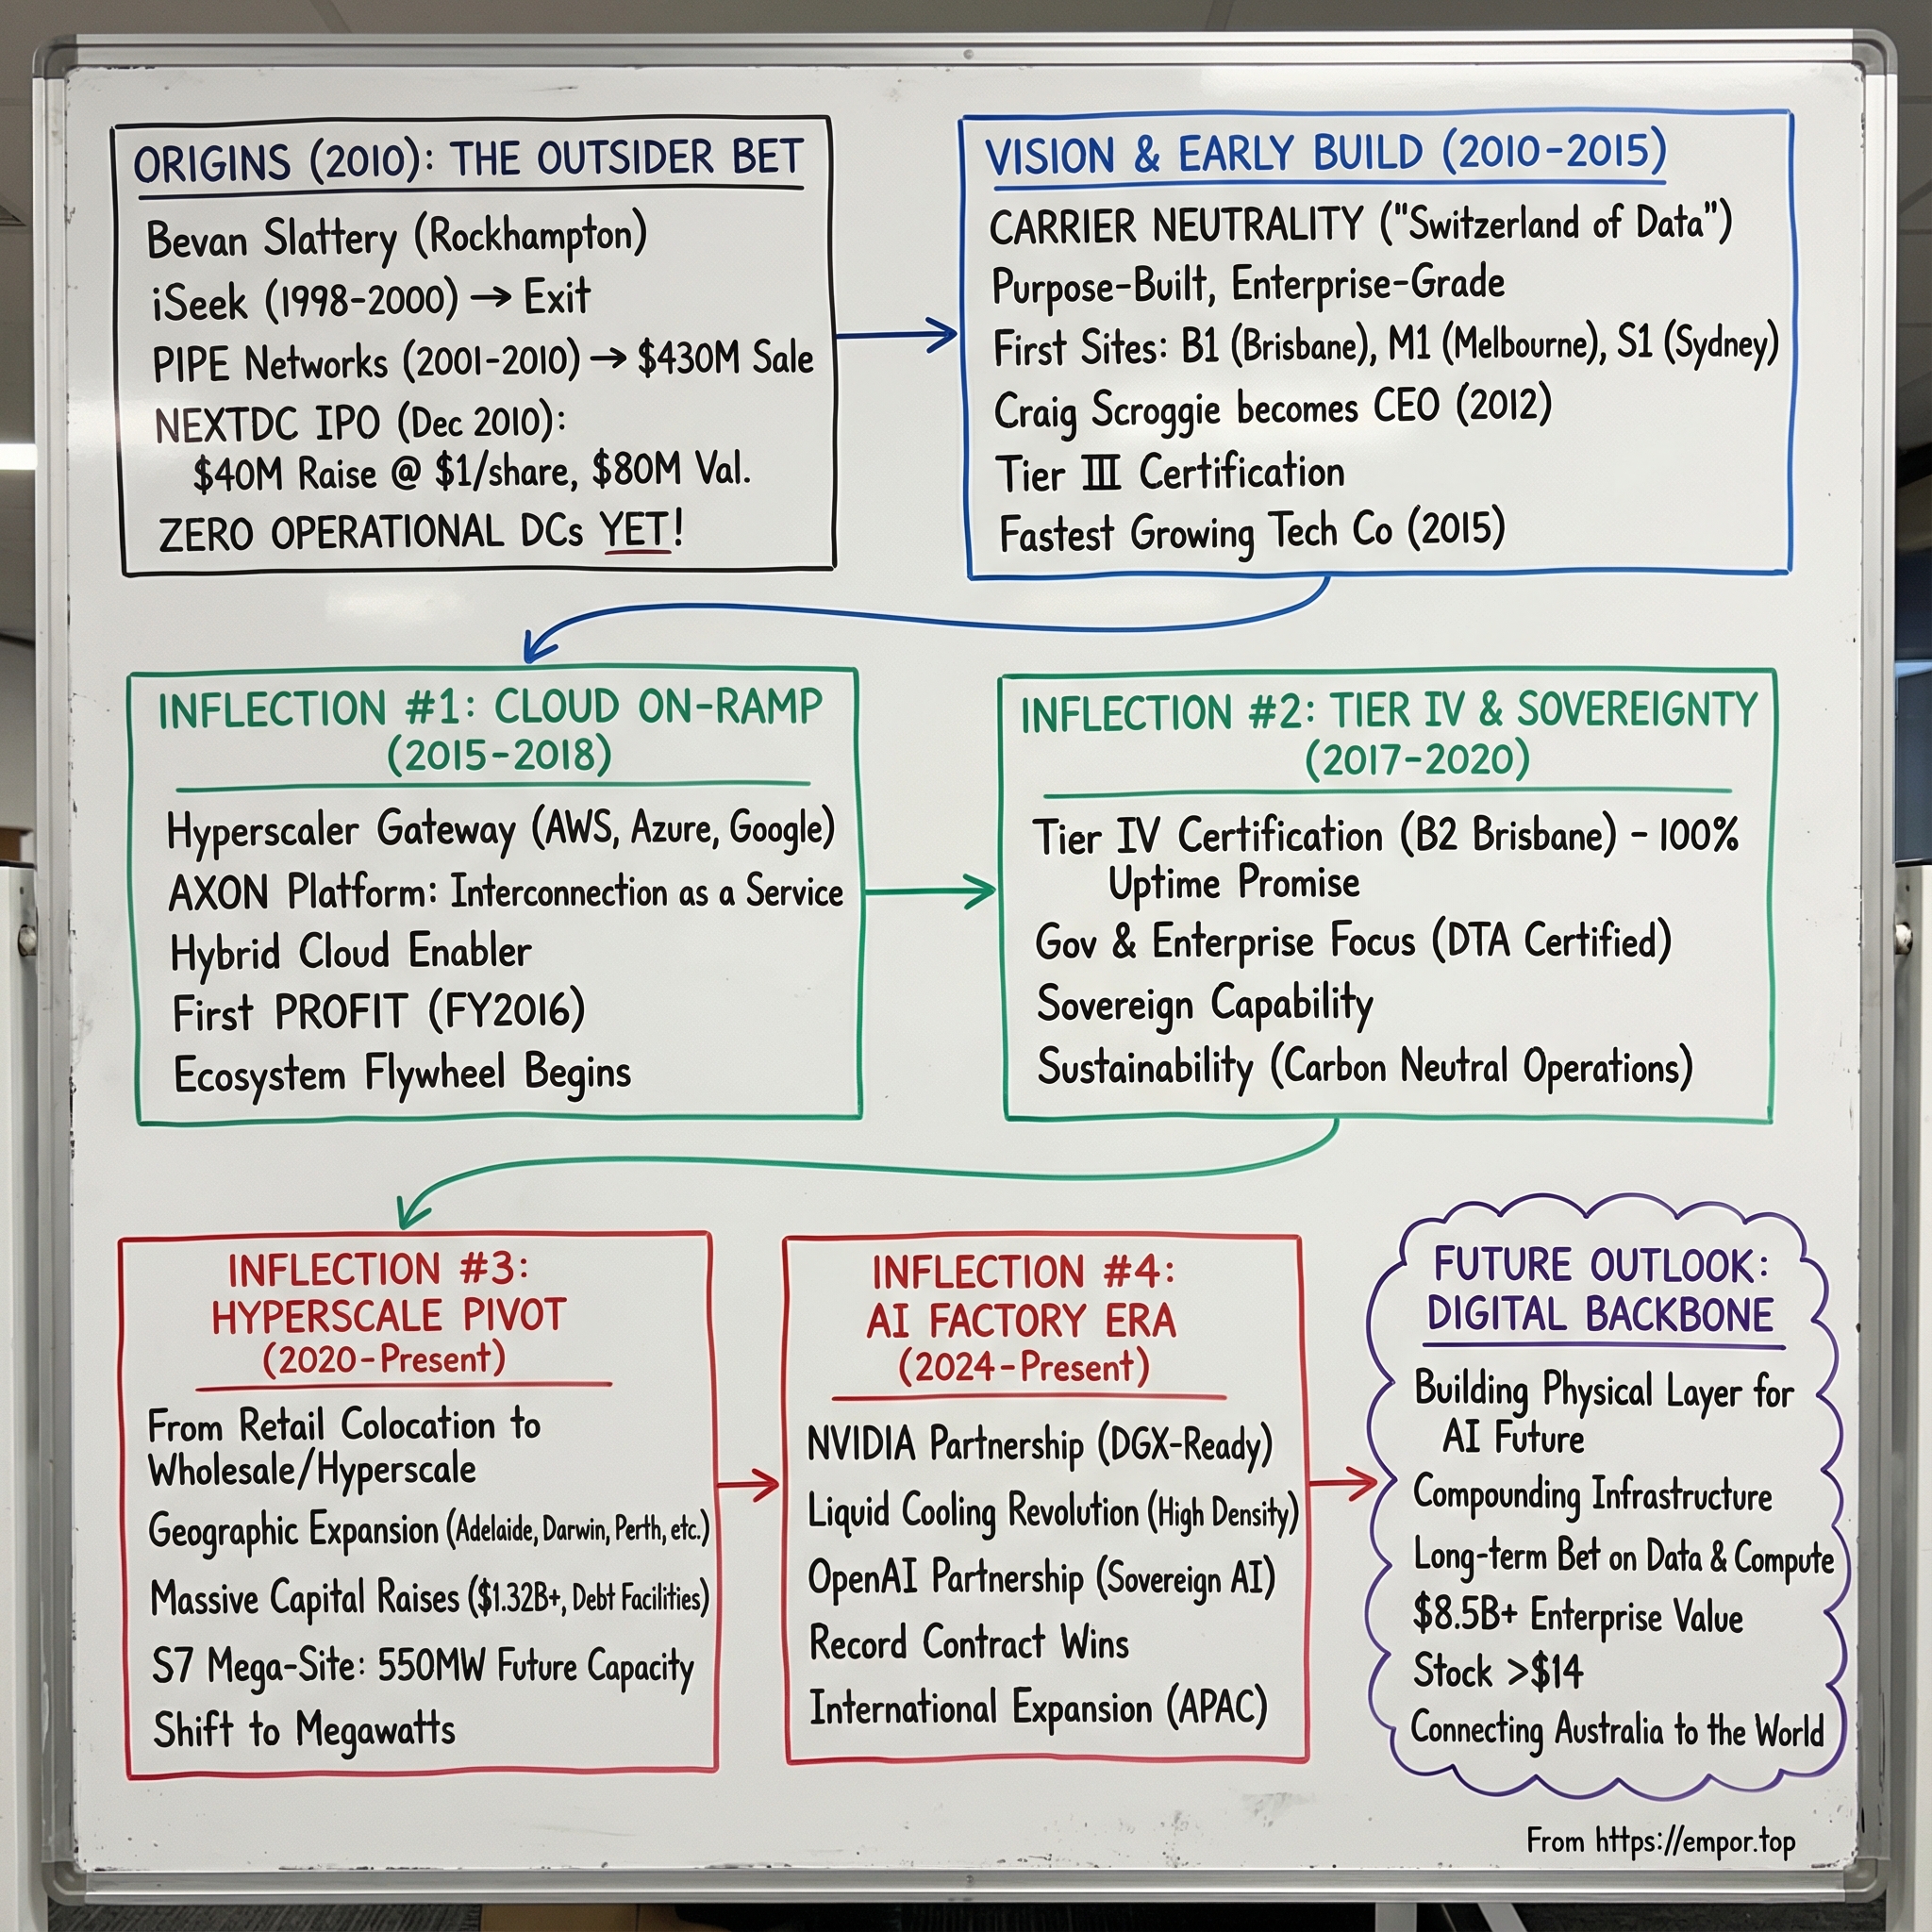 ORIGINS (2010): THE OUTSIDER BET
Bevan Slattery (Rockhampton)
iSeek (1998-2000) → Exit
PIPE Networks (2001-2010) → $430M Sale
NEXTDC IPO (Dec 2010):
$40M Raise @ $1/share, $80M Val.
ZERO OPERATIONAL DCs YET!
VISION & EARLY BUILD (2010-2015)
CARRIER NEUTRALITY ("Switzerland of Data")
Purpose-Built, Enterprise-Grade
First Sites: B1 (Brisbane), M1 (Melbourne), S1 (Sydney)
Craig Scroggie becomes CEO (2012)
Tier III Certification
Fastest Growing Tech Co (2015)
INFLECTION #1: CLOUD ON-RAMP
(2015-2018)
Hyperscaler Gateway (AWS, Azure, Google)
AXON Platform: Interconnection as a Service
Hybrid Cloud Enabler
First PROFIT (FY2016)
Ecosystem Flywheel Begins
INFLECTION #2: TIER IV & SOVEREIGNTY
(2017-2020)
Tier IV Certification (B2 Brisbane) - 100%
Uptime Promise
Gov & Enterprise Focus (DTA Certified)
Sovereign Capability
Sustainability (Carbon Neutral Operations)
INFLECTION #3:
HYPERSCALE PIVOT
(2020-Present)
From Retail Colocation to
Wholesale/Hyperscale
Geographic Expansion (Adelaide, Darwin, Perth, etc.)
Massive Capital Raises ($1.32B+, Debt Facilities)
S7 Mega-Site: 550MW Future Capacity
Shift to Megawatts
INFLECTION #4:
AI FACTORY ERA
(2024-Present)
NVIDIA Partnership (DGX-Ready)
Liquid Cooling Revolution (High Density)
OpenAI Partnership (Sovereign AI)
Record Contract Wins
International Expansion (APAC)
FUTURE OUTLOOK:
DIGITAL BACKBONE
Building Physical Layer for
AI Future
Compounding Infrastructure
Long-term Bet on Data & Compute
$8.5B+ Enterprise Value
Stock >$14
Connecting Australia to the World
From https://empor.top